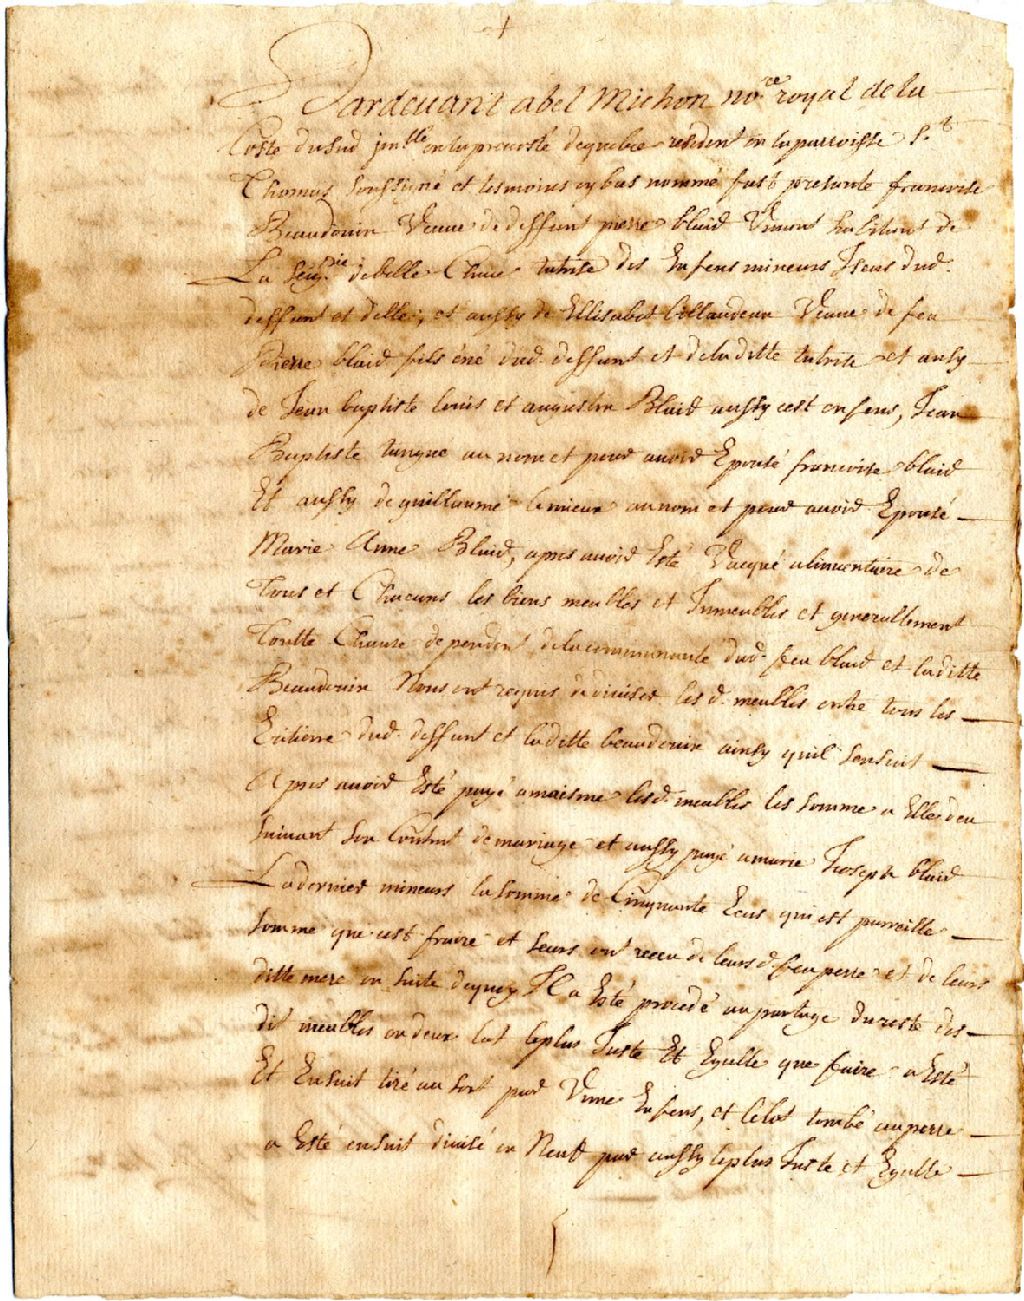 Pardeuant abel Michon no.re royal de la
Coste du sud en la preuosté de quebec resident en la parroisse S.t
Thomas soussigné et tesmoins cy bas nommé fust presante francoise
Beaudouin Veuue de deffunt pierre blaid Viuant habitant de
La Seig.rie de belle Chace tutrise des Enfens mineurs Iseus dud.
deffunt et delle, et aussy de Ellisabet Veuue de feu
Pierre blaid fils éné dud. deffunt et de laditte tutrise et ausy
de Jean baptiste louis et augustin Blaid aussy cest enfens, Jean
Baptiste tangué au nom et pour auoir Epousé francoise blaid
Et aussy de guillaume lemieux au nom et pour auoir Epousé
Marie Anne Blaid, apres auoir Esté Vacqué a linuentaire de
tous et Chacuns les biens meubles et Inmeubles et generallement
toutte Chause dependent de la communauté dud. feu blaid et laditte
Beaudouin Nous ont requis de diuiser les d. meubles entre tous les
Eritiere dud. deffunt et laditte beaudouin ainsy quil sensuit
Apres auoir Esté payé a maisme lesd. meubles les somme a Elle deu
suiuant son Contrat de mariage et aussy payé a marie Joseph blaid
La dernier mineurs la somme de Cinquante Ecus qui est pareille
somme que cest fraire et seurs ont receu de leurs d. feu perre et de leurs
ditte mere en suite dequoy Il a Esté procedé au partage du reste des
dit meubles en deux lot le plus Juste Et Egalle que faire a Esté
Et Ensuit tiré au sort par Vn Enfens, et le lot tombé au perre
a Esté ensuit diuisé en Neuf par aussy le plus Juste et Egalle